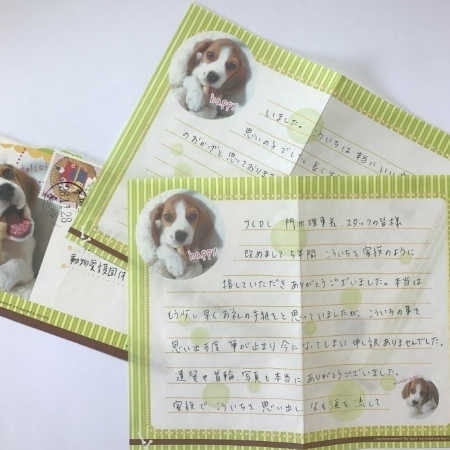 happy
いました。こういちは 本当に
思い
のおかげと思っております
happy
つくセし 門 理事長 スタッフの皆様
改めまして 5年間 こういちを 家族のように
接していただき ありがとうございました。本当は
もう少し早く お礼の手紙をと 思っていましたが、こういちの事を
思い出す度 筆が止まり 今になってしまい 申し訳ありませんでした。
遺骨や首輪、写真も本当に ありがとうございました。
家族で こういちを 思い出し なお涙を流して
動物愛護団体
28